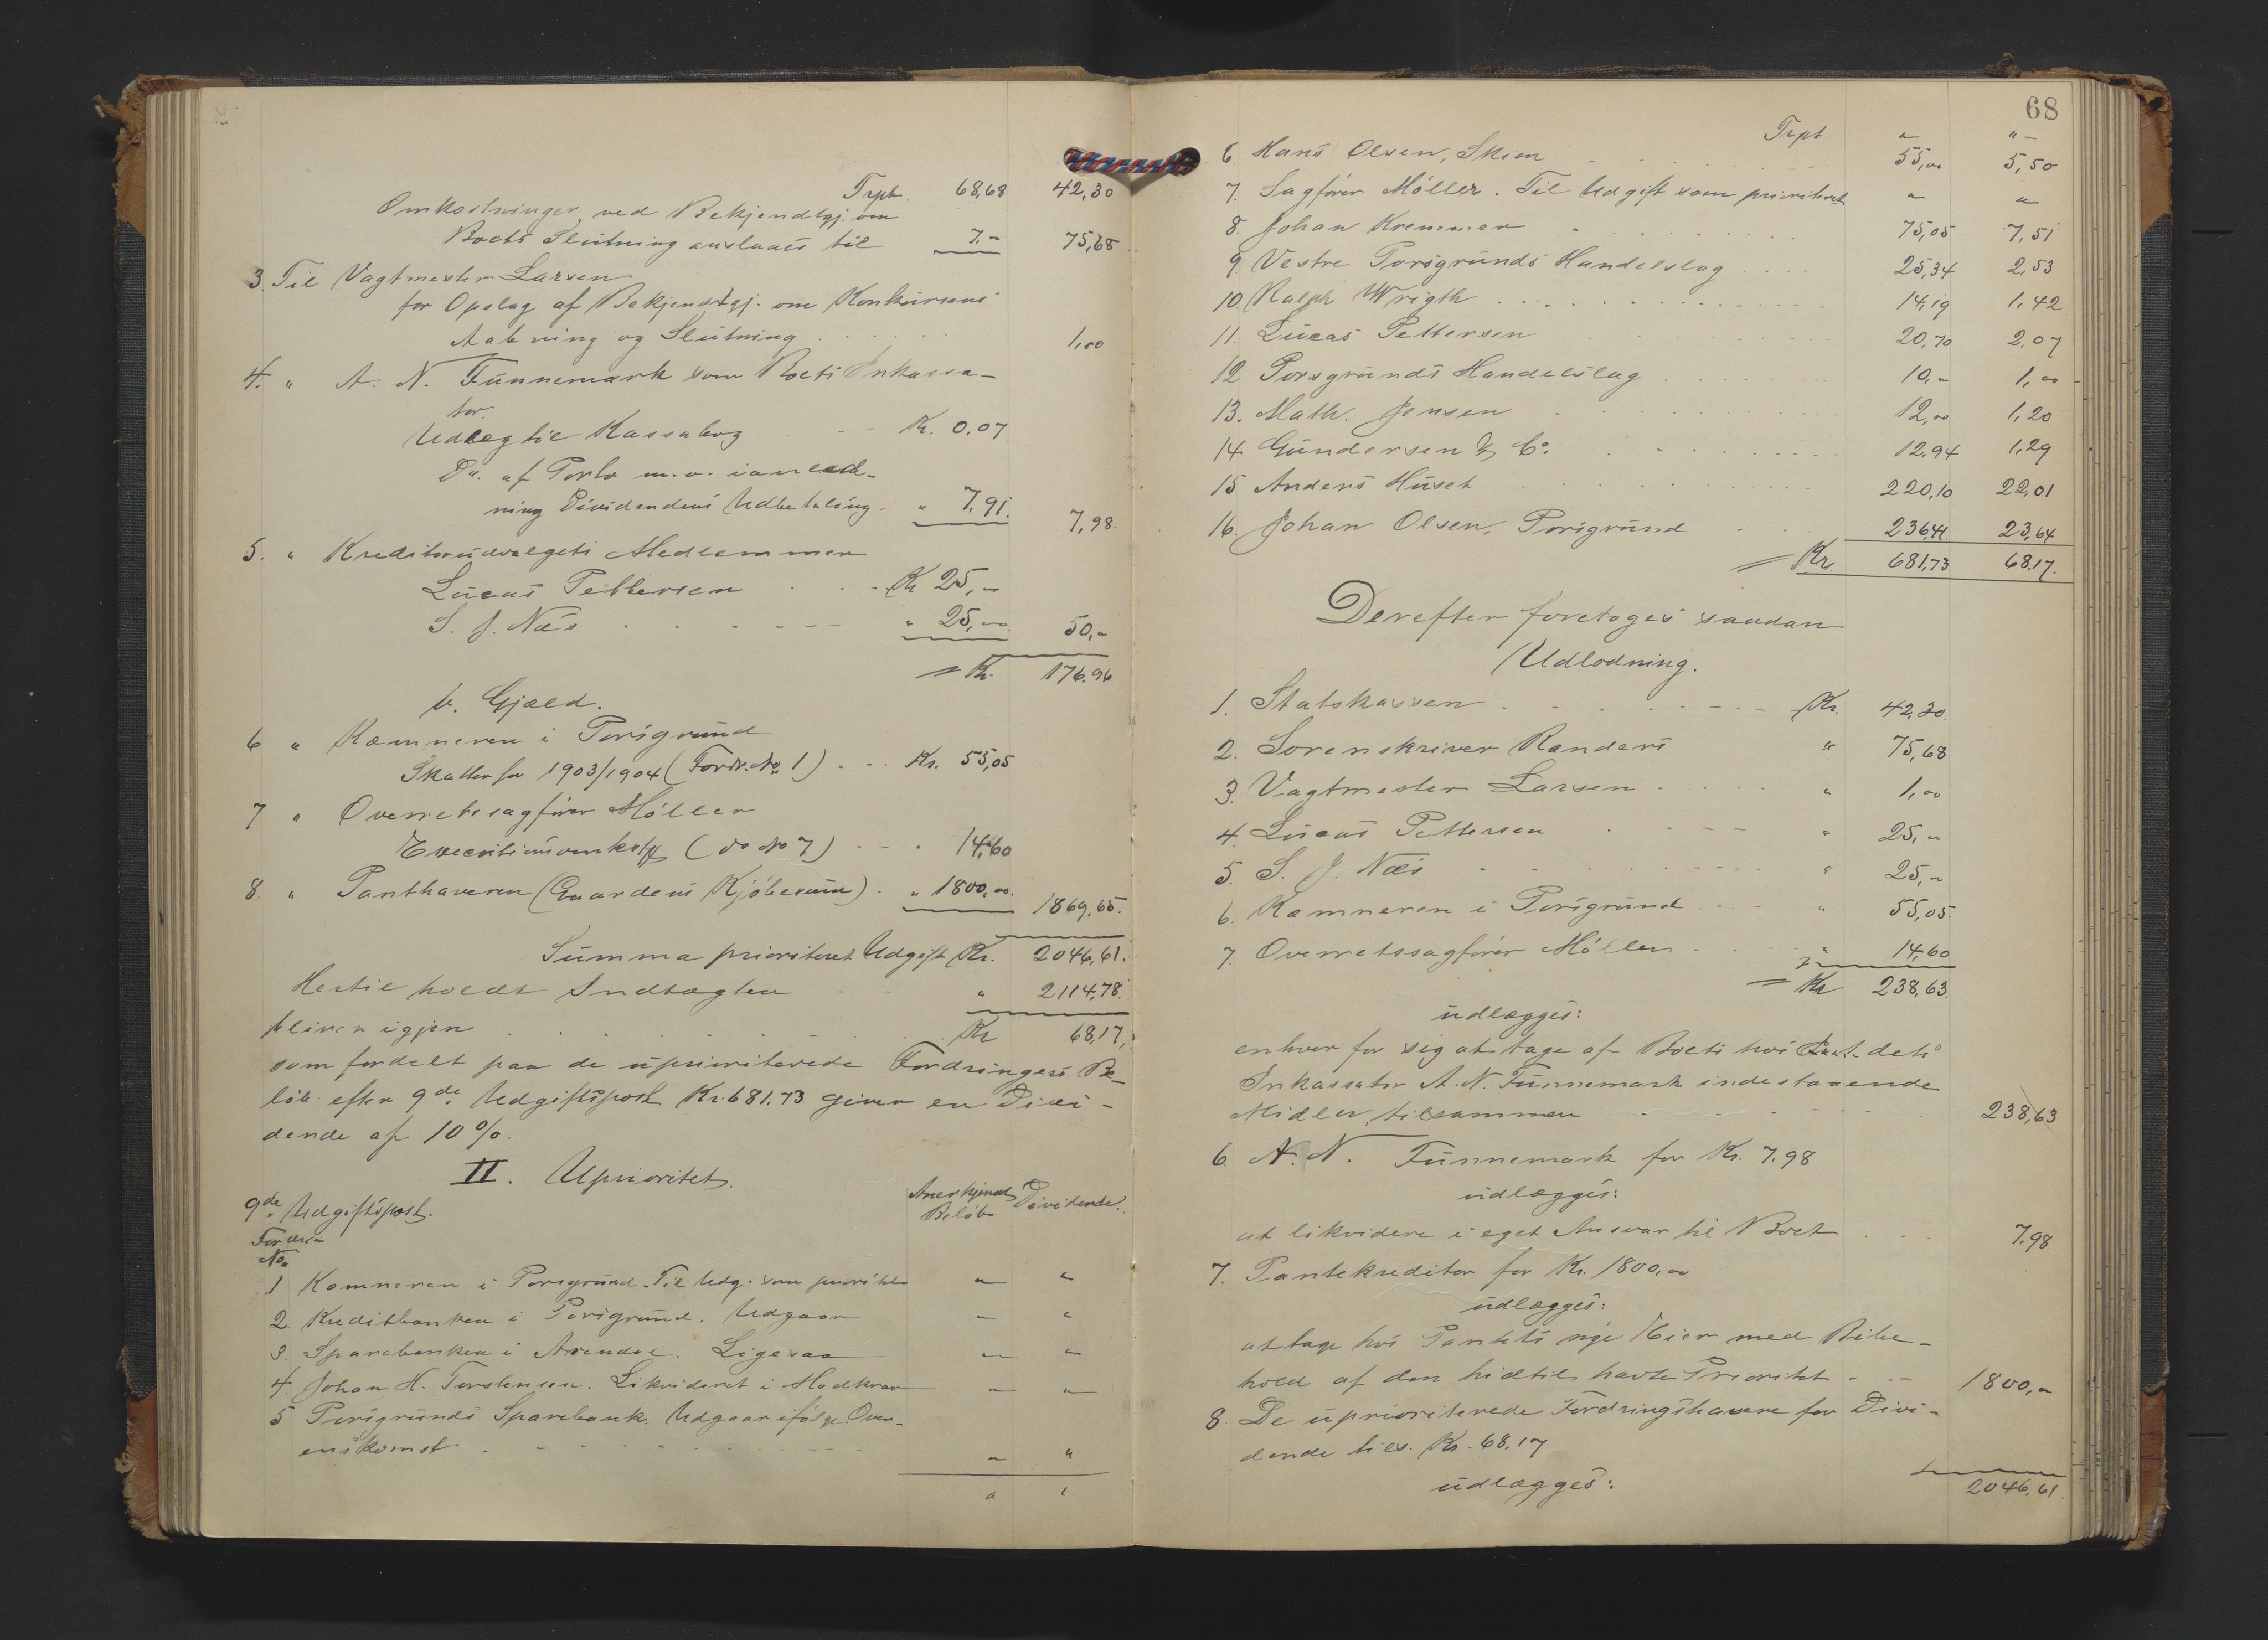 Trpt. 68,68 42,30
Omkostninger ved Bekjendtgj. om
Boets Slutning anslaaes til 7.„ 75,68
3. Til Vagtmester Larsen
for Opslag af Bekjendtgj. om Konkursens
Aabning og Slutning 1,00
4. „ A. N. Funnemark som Boets Inkassa-
tor.
Udlæg til Kassabog Kr. 0,07
Do. af Porto m.v. i anled-
ning Dividendens Udbetaling „ 7,91. 7,98.
5. „ Kreditorudvalgets Medlemmer
Lucas Pettersen Kr 25,„
S. J. Næs „ 25,00 50,„
= Kr. 176.96
b. Gjæld.
6 „ Kæmneren i Porsgrund
Skatter for 1903/1904 (Fordr. No 1) Kr. 55,05
7 „ Overretssagfører Møller
Executionsomkstg (do No 7) 14,60
8. „ Panthaveren (Gaardens Kjøbesum) „ 1800,00. 1869,65.
Summa prioritert Udgift Kr. 2046,61.
Hertil holdt Indtægten „ 2114,78.
bliver igjen Kr 68,17,
som fordelt paa de uprioriterede Fordringers Be-
løb efter 9de Udgiftspost Kr. 681.73 giver en Divi-
dende af 10 %.
II. Uprioritet.
9de Udgiftspost. Anerkjendt Beløb Dividende.
Fordr.
No.
1 Kæmneren i Porsgrund. Til Udg. som prioritet „ „
2. Kreditbanken i Porsgrund. Udgaar „ „
3. Sparebanken i Arendal. Ligesaa „ „
4. Johan H. Torstensen. Likvideret i Modkrav „ „
5 Porsgrunds Sparebank. Udgaar ifølge Over-
enskomst „ „
„ „
68
Trpt. „ „
6. Hans Olsen, Skien 55,00 5,50
7. Sagfører Møller. Til Udgift som prioritert „ „
8. Johan Kremmer 75,05 7,51
9. Vestre Porsgrunds Handelslag 25,34 2,53
10. Ralph Wrigth 14,19 1,42
11. Lucas Pettersen 20,70 2,07
12 Porsgrunds Handelslag 10,„ 1,00
13. Math. Jensen 12,00 1,20
14 Gundersen & Co 12,94 1,29
15 Anders Huset 220,10 22,01
16. Johan Olsen, Porsgrund 236,41. 23,64
= Kr. 681,73 68,17.
Derefter foretoges saadan
Udlodning.
1. Statskassen Kr. 42,30
2. Sorenskriver Randers „ 75,68
3. Vagtmester Larsen „ 1,00
4. Lucas Pettersen „ 25,„
5. S. J. Næs „ 25,„
6. Kæmneren i Porsgrund „ 55,05
7. Overretssagfører Møller „ 14,60
= Kr 238,63.
udlægges:
enhver for sig at tage af Boets hos dets
Inkassator A. N. Funnemark indestaaende
Midler, tilsammen 238,63
6. A. N. Funnemark for Kr. 7.98
udlægges:
at likvidere i eget Ansvar til Boet 7,98
7. Pantekreditor for Kr. 1800,00
udlægges:
at tage hos Pantets nye Eier med Bibe-
hold af den hidtil havte Prioritet 1800,„
8. De uprioriterede Fordringshavere for Divi-
dende tils. Kr. 68.17
udlægges:
2046,61.